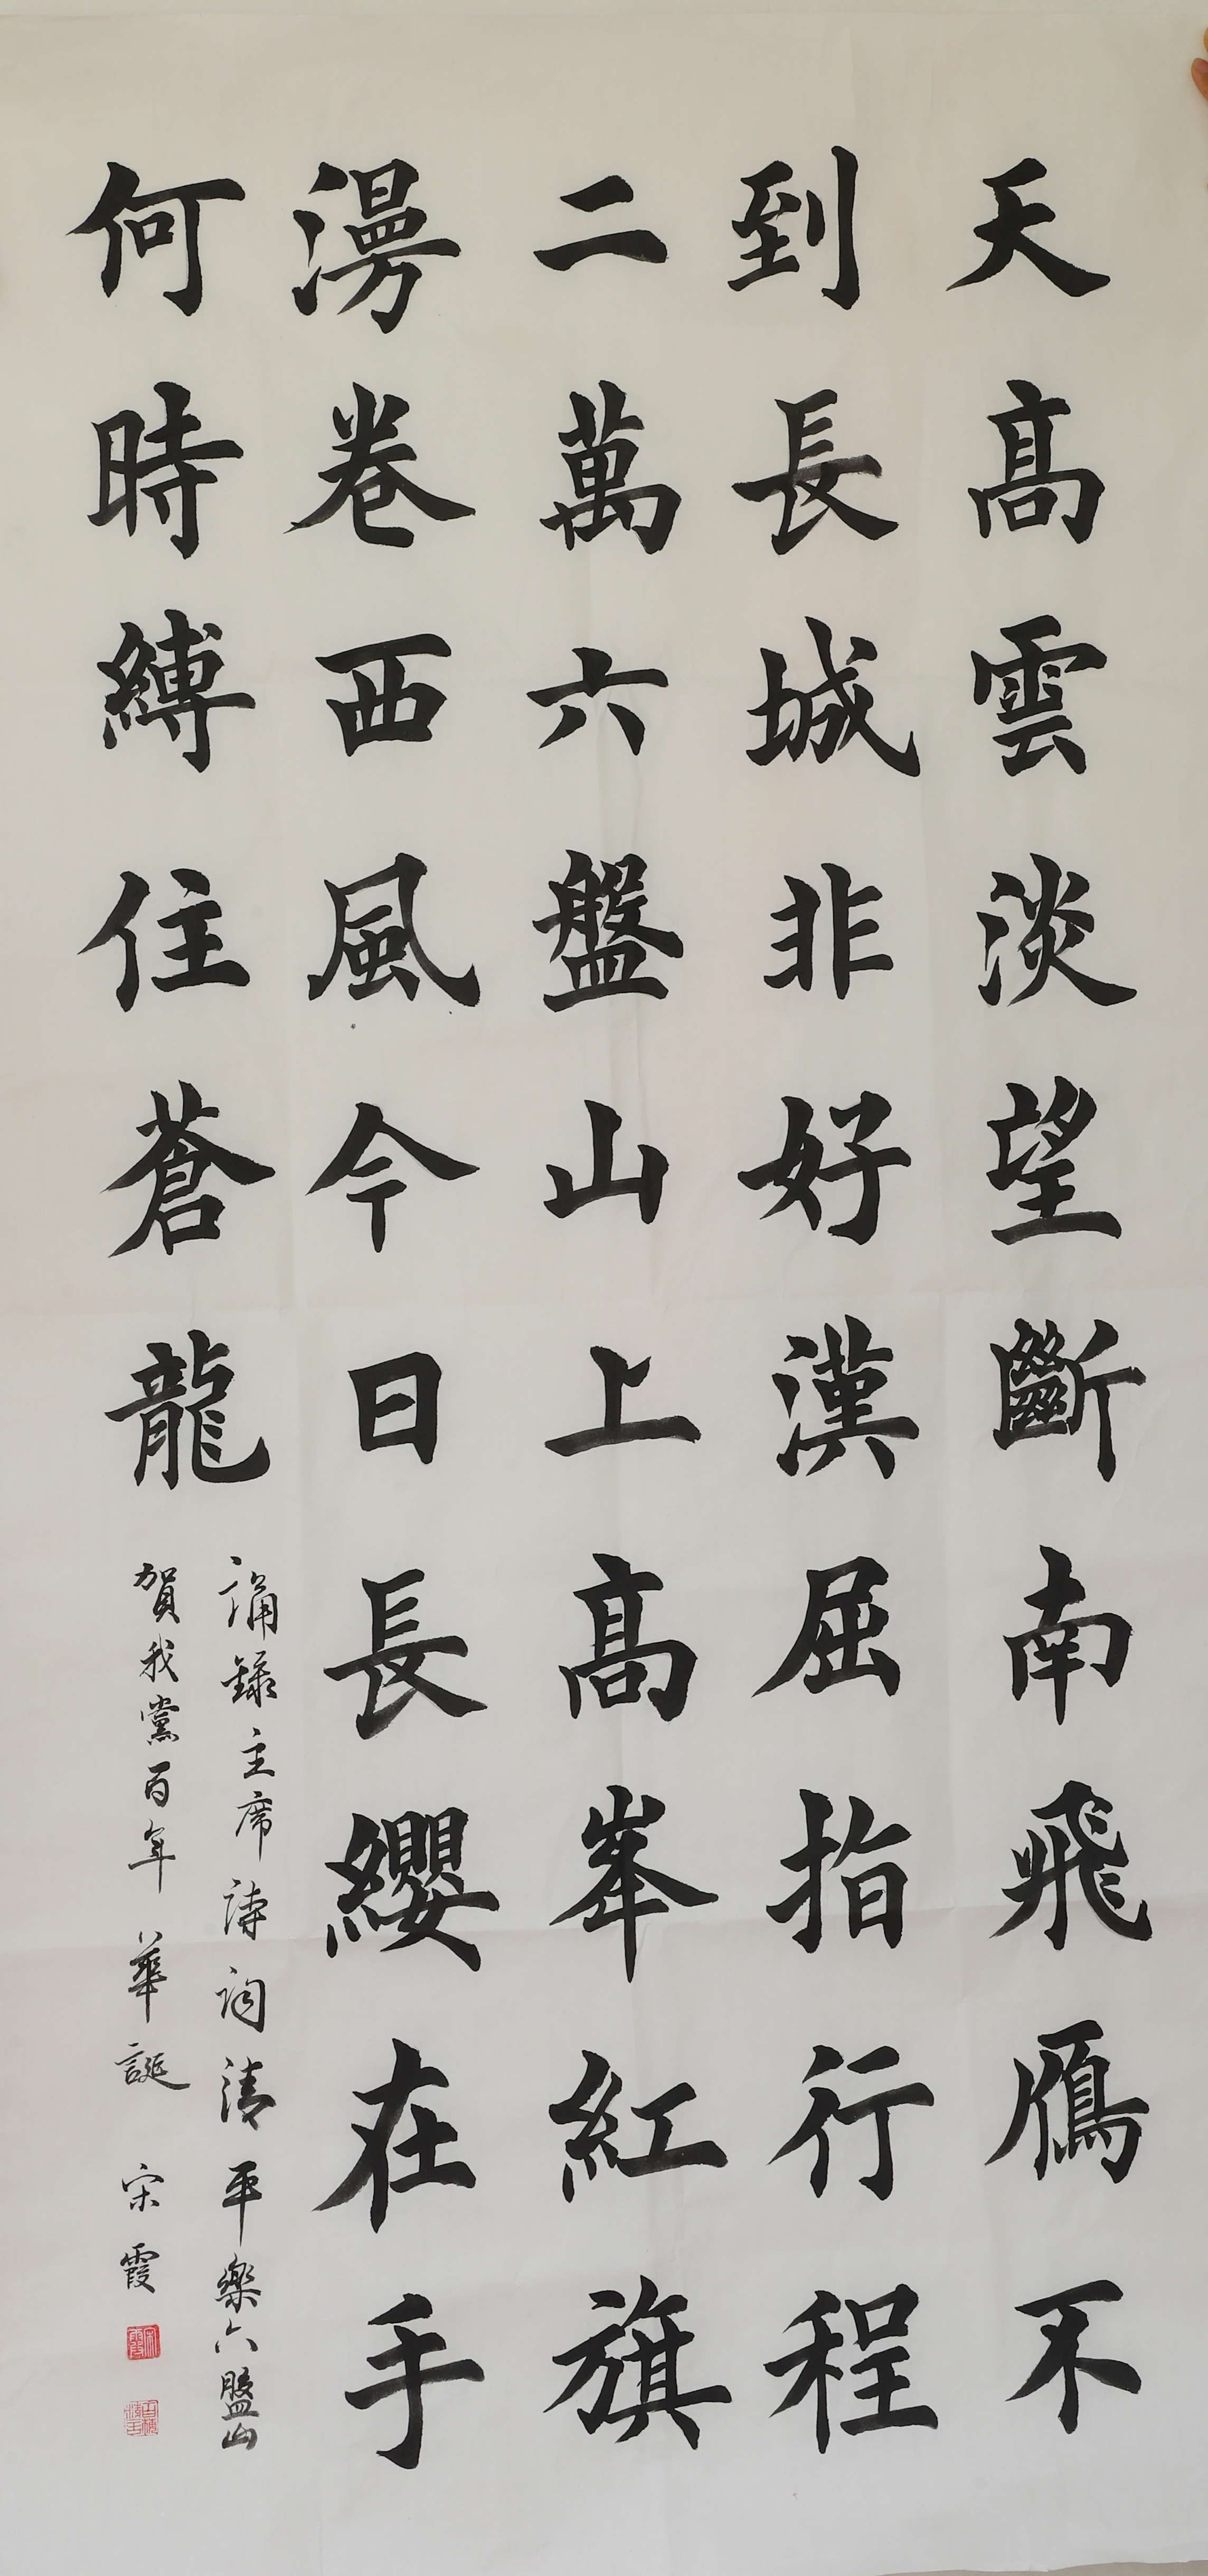 天高雲淡望斷南飛鴈不
到長城非好漢屈指行程
二萬六盤山上高峯紅旗
漫卷西風今日長纓在手
何時縛住蒼龍
誦錄主席詩詞清平樂六盤山
賀我黨百年華誕 宋霞
宋霞